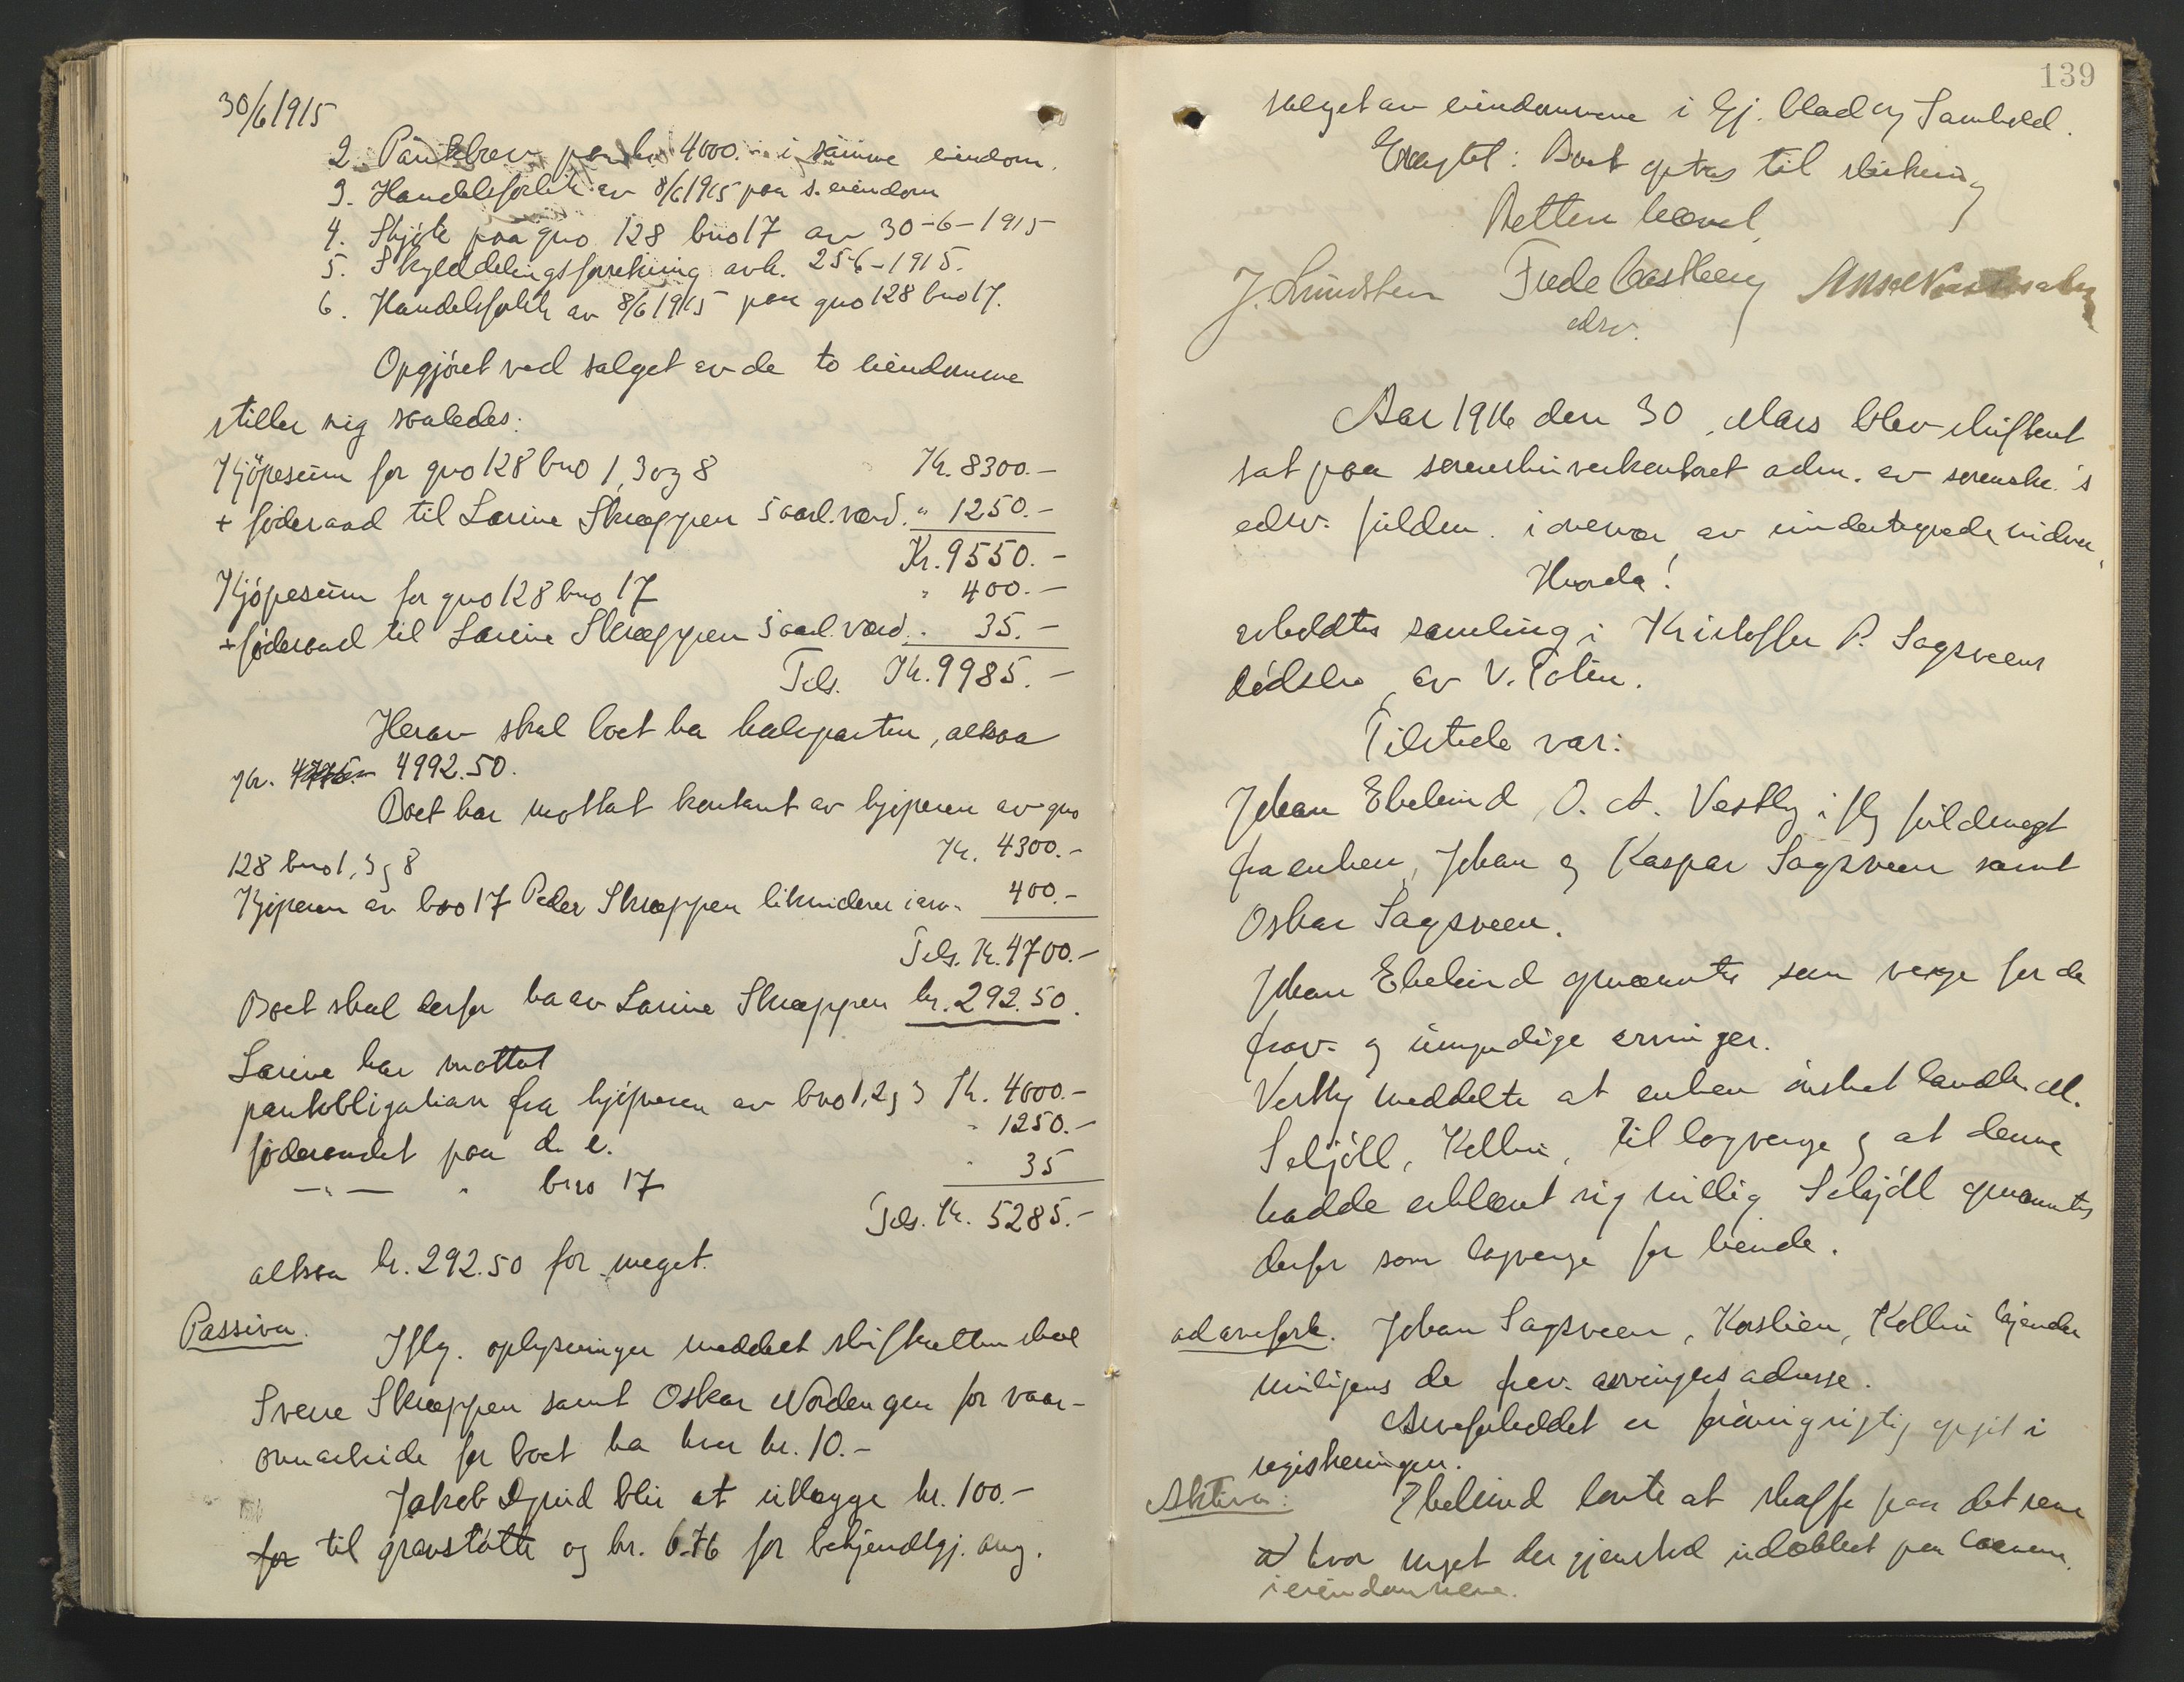 30/6 1915
2. Pantebrev paa kr 4000.- i samme eiendom.
3. Handelsforlik av 8/6 1915 paa s. eiendom
4. Skjöte paa gno 128 bno 17 av 30-6-1915
5. Skylddelingsforretning avh. 25-6-1915.
6. Handelsforlik av 8/6 1915 paa gno 128 bno 17.
Opgjöret ved salget av de to eiendomme
stiller sig saaledes:
Kjöpesum for gno 128 bno 1, 3 og 8 Kr. 8300.-
+ föderaad til Larine Skræppen 5 aarl. værd. " 1250.-
Kr. 9550.-
Kjöpesum for gno 128 bno 17 " 400.-
+ föderaad til Larine Skræppen 5 aarl. værd. " 35.-
Tils. Kr. 9985.-
Herav skal boet ha halvparten, altsaa
Kr. 4992.50.
Boet har mottat kontant av kjöperen av gno
128 bno 1, 3 og 8 Kr. 4300.-
Kjöperen av bno 17 Peder Skræppen likviderer i arv " 400.-
Tils. Kr. 4700.-
Boet skal derfor ha av Larine Skræppen kr. 292.50.
Larine har mottat
pantobligation fra kjöperen av bno 1, 2 og 3 Kr. 4000.-
föderaadet paa d. e. " 1250.-
-"- " bno 17 " 35
Tils. Kr. 5285.-
altsaa kr. 292.50 for meget.
Passiva. Iflg. oplysninger meddelt skifteretten skal
Sverre Skræppen samt Oskar Nordengen for vaar-
onnarbeide for boet ha hver kr. 10.-
Jakob blir at utlægge kr. 100.-
for til gravstötte og kr. 6.76 for bekjendtgj. ang.
139
salget av eiendommene i Gj. blad og Samhold.
Eragtet: Boet optas til slutning
Retten hævet.
J. Lundsten Frede Castberg
edsv.
Aar 1916 den 30. Mars blev skifteret
sat paa sorenskriverkontoret adm. av sorenskr.'s
edsv. fuldm. i overvær av undertegnede vidner,
Hvorda!
avholdtes samling i Kristoffer P. Sagsveens
dödsbo av V. Toten.
Tilstede var:
Johan Ebelund, O. A. Vestby iflg fuldmagt
fra enken, Johan og Kaspar Sagsveen samt
Oskar Sagsveen.
Johan Ebelund opnævntes som verge for de
frav. og umyndige arvinger.
Vestby meddelte at enken önsket landh.
Seljöll, Kolbu, til lagverge og at denne
hadde erklæret sig villig Seljöll opnævntes
derfor som lagverge for hende.
ad arveforh. Johan Sagsveen, Korslien, Kolbu kjender
muligens de frav. arvingers adresse.
Arveforholdet er forövrig rigtig opgit i
registreringen.
Aktiva: Ebelund lovte at skaffe paa det rene
hvor meget der gjenstod udekket paa laanene
i eiendommene.